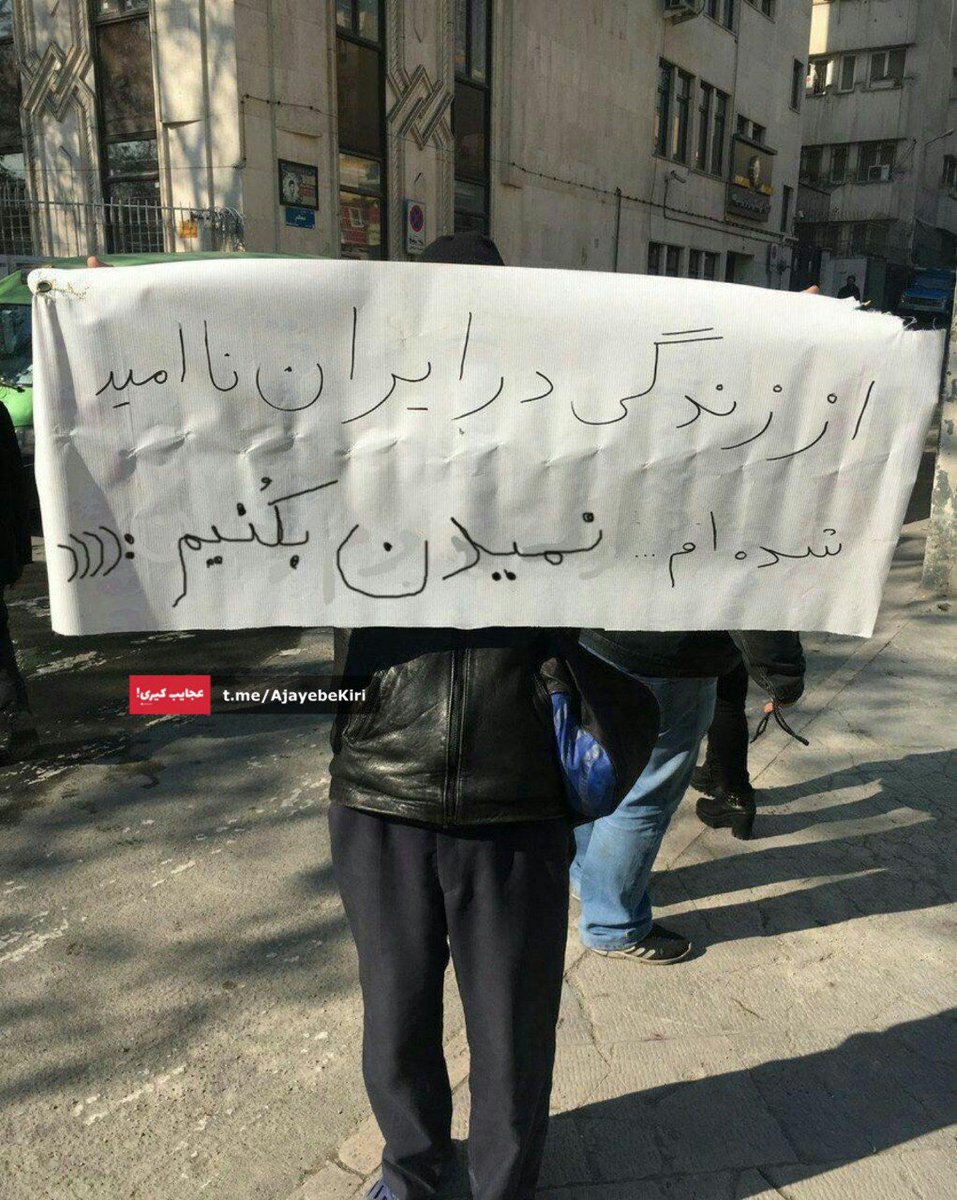 از زندگی در ایران نا امید
شده ام... نمیدن بکُنیم :((((
عجایب کیری!
t.me/AjayebeKiri